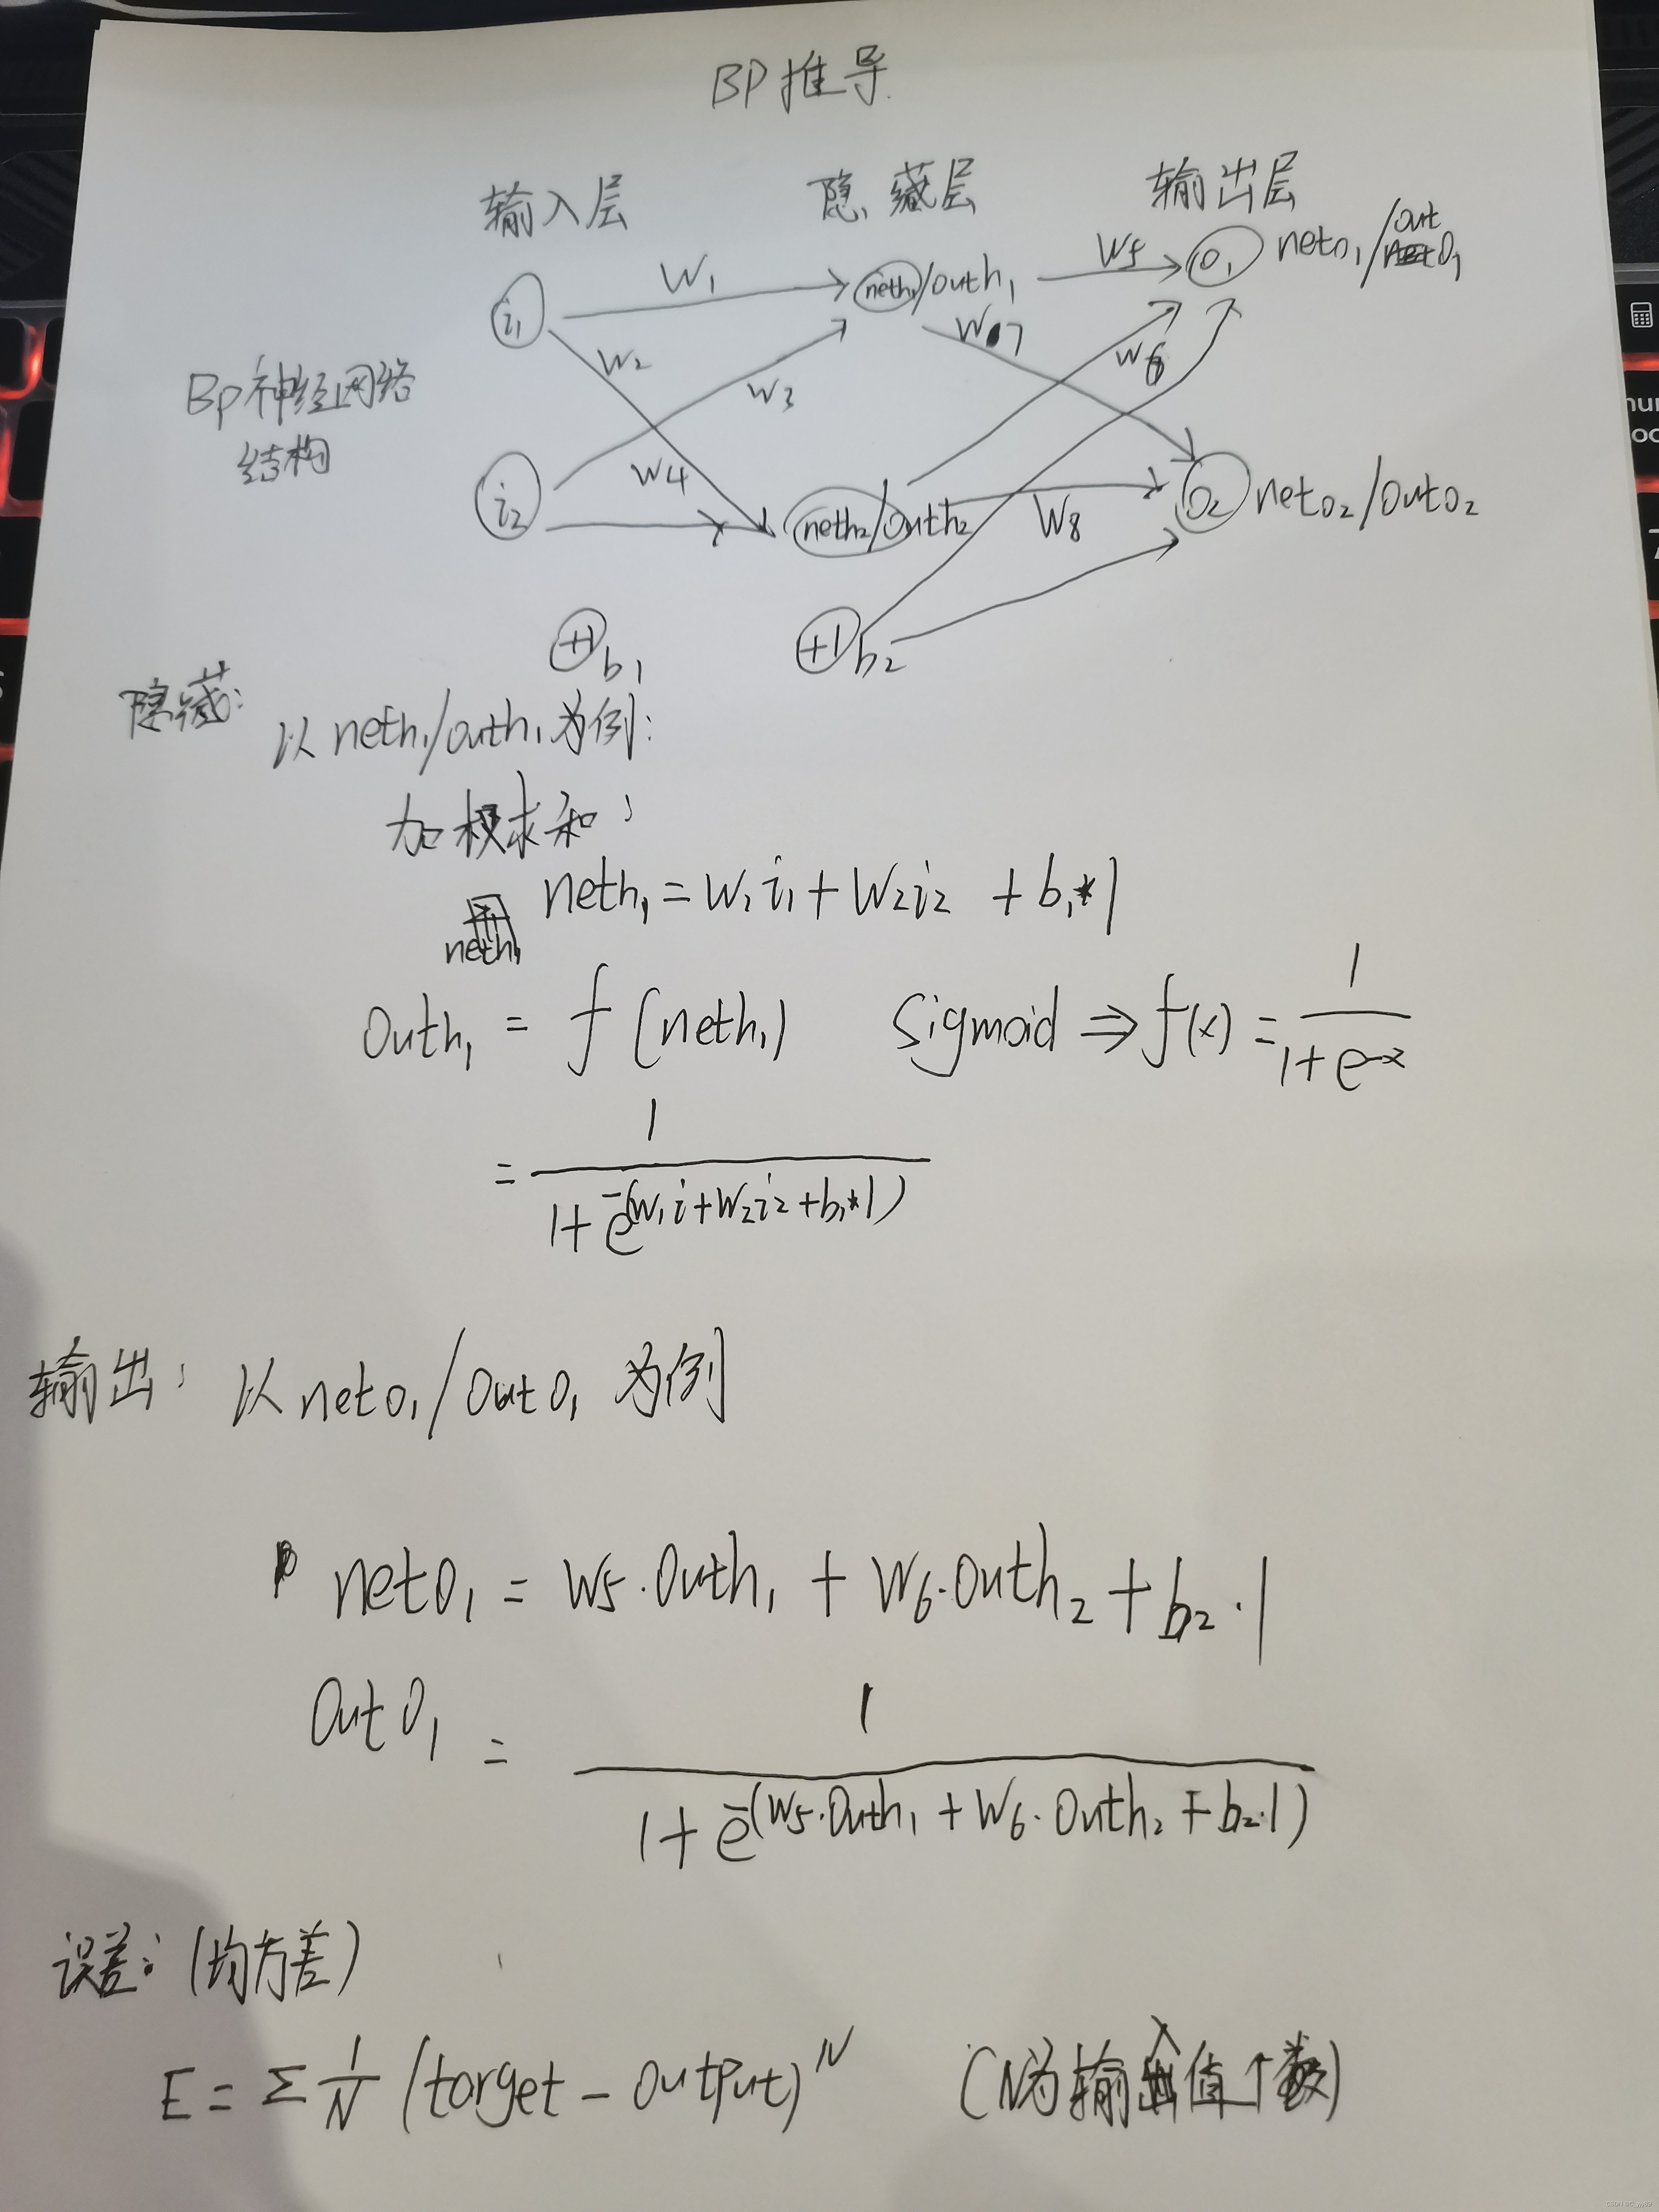 BP推导
输入层 隐藏层 输出层
W₁ neth₁/outh₁ W5 O₁ neto₁/out O₁
i₁ W₂ W7 W6
BP神经网络 W₃
结构
i₂ W4 neth₂/outh₂ W8 O₂ neto₂/outo₂
+1 b₁ +1 b₂
隐藏:
以neth₁/outh₁为例:
加权求和:
neth₁ = W₁i₁ + W₂i₂ + b₁*1
neth₁
Outh₁ = f(neth₁) Sigmoid ⇒ f(x) = 1/(1+e^-x)
= 1/(1+e^-(W₁i+W₂i₂+b₁*1))
输出: 以neto₁/outo₁为例
netO₁ = W5·Outh₁ + W6·Outh₂ + b₂·1
OutO₁ = 1/(1+e^-(W5·Outh₁ + W6·Outh₂ + b₂·1))
误差:(均方差)
E = Σ 1/N (target - output)^N (N为输入值个数)